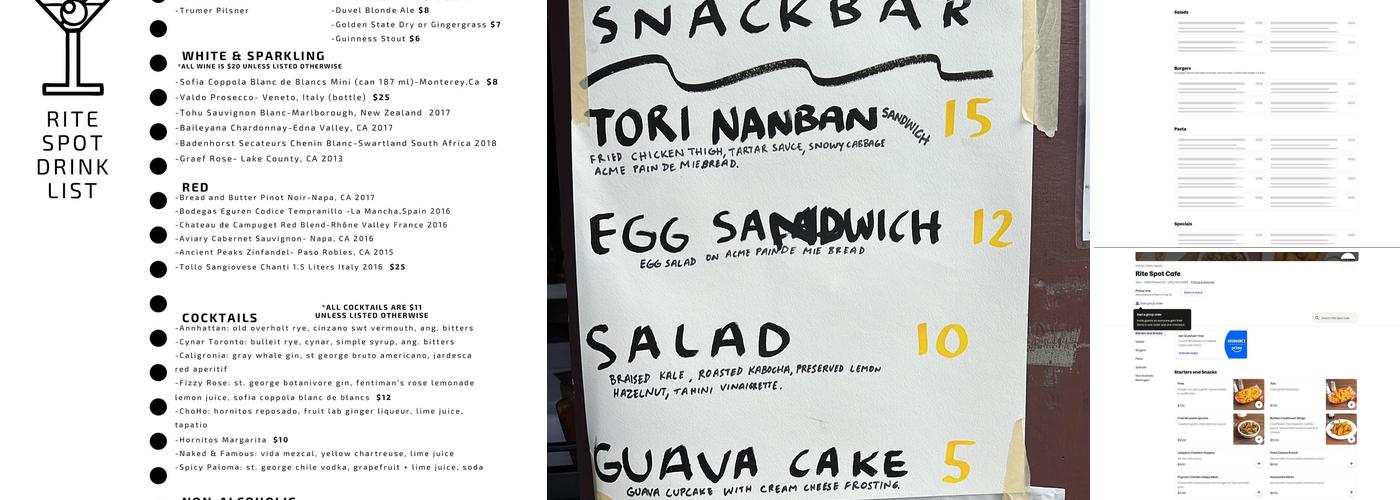 -Trumer Pilsner
-Duvel Blonde Ale $8
-Golden State Dry or Gingergrass $7
-Guinness Stout $6
WHITE & SPARKLING
*ALL WINE IS $20 UNLESS LISTED OTHERWISE
-Sofia Coppola Blanc de Blancs Mini (can 187 ml)-Monterey,Ca $8
-Valdo Prosecco- Veneto, Italy (bottle) $25
-Tohu Sauvignon Blanc-Marlborough, New Zealand 2017
-Baileyana Chardonnay-Edna Valley, CA 2017
-Badenhorst Secateurs Chenin Blanc-Swartland South Africa 2018
-Graef Rose- Lake County, CA 2013
RITE
SPOT
DRINK
LIST
RED
-Bread and Butter Pinot Noir-Napa, CA 2017
-Bodegas Eguren Codice Tempranillo -La Mancha,Spain 2016
-Chateau de Campuget Red Blend-Rhône Valley France 2016
-Aviary Cabernet Sauvignon- Napa, CA 2016
-Ancient Peaks Zinfandel- Paso Robles, CA 2015
-Tollo Sangiovese Chanti 1.5 Liters Italy 2016 $25
*ALL COCKTAILS ARE $11
UNLESS LISTED OTHERWISE
COCKTAILS
-Annhattan: old overholt rye, cinzano swt vermouth, ang. bitters
-Cynar Toronto: bulleit rye, cynar, simple syrup, ang. bitters
-Caligronia: gray whale gin, st george bruto americano, jardesca
red aperitif
-Fizzy Rose: st. george botanivore gin, fentiman's rose lemonade
lemon juice, sofia coppola blanc de blancs $12
-ChoHo: hornitos reposado, fruit lab ginger liqueur, lime juice,
tapatio
-Hornitos Margarita $10
-Naked & Famous: vida mezcal, yellow chartreuse, lime juice
-Spicy Paloma: st. george chile vodka, grapefruit + lime juice, soda
NON-ALCOHOLIC
SNACKBAR
TORI NANBAN SANDWICH 15
FRIED CHICKEN THIGH, TARTAR SAUCE, SNOWY CABBAGE
ACME PAIN DE MIE BREAD.
EGG SANDWICH 12
EGG SALAD ON ACME PAIN DE MIE BREAD
SALAD 10
BRAISED KALE, ROASTED KABOCHA, PRESERVED LEMON
HAZELNUT, TAHINI VINAIGRETTE.
GUAVA CAKE 5
GUAVA CUPCAKE WITH CREAM CHEESE FROSTING.
Salads
Burgers
Pasta
Specials
Rite Spot Cafe
Pickup only
Start group order
Search Rite Spot Cafe
Starters and Snacks
Salads
Burgers
Pasta
Specials
Starters and Snacks
Fries
Tots
Fried Brussels Sprouts
Buffalo Cauliflower Wings
Jalapeno Cheddar Poppers
Fried Cheese Ravioli
Popcorn Chicken Happy Meal
Mozzarella Sticks